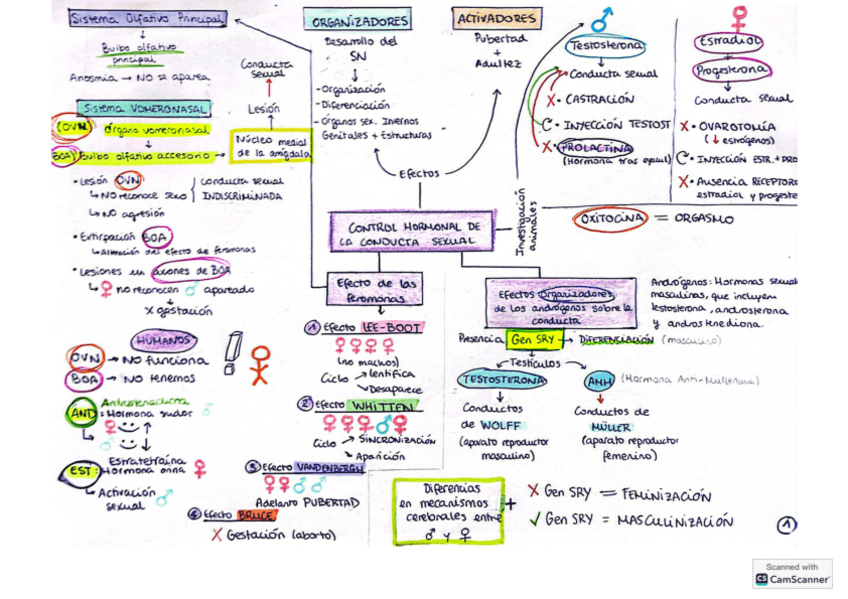 Sistema Olfativo Principal
Bulbo olfativo
principal
Anosmia → NO se aparea
Sistema VOMERONASAL
(OVN) Órgano vomeronasal
BOA) Bulbo olfativo accesorio →
Conducta
sexual
Lesión
Núcleo medial
de la amígdala
• Lesión OVN
↳ NO reconoce sexo
↳ NO agresión
conducta sexual
INDISCRIMINADA
• Extirpación BOA
↳ Alteración del efecto de feromonas
• Lesiones en axones de BOA
↳ ♀ no reconocen ♂ apareado
→ X gestación
HUMANOS
OVN → NO funciona
BOA → NO tenemos
Androstenediona
AND: Hormona sudor ♂
♀ ↑
↳ ♂ ↓
Estratetraina
EST: Hormona orina ♀
↳ Activación
sexual ♂
ORGANIZADORES
Desarrollo del
SN
- Organización
- Diferenciación
- Órganos sex. Internos
Genitales + Estructuras
ACTIVADORES
Pubertad
+
Adultez
Efectos
CONTROL HORMONAL DE
LA CONDUCTA SEXUAL
Investigación
animales
♂
Testosterona
Conducta sexual
X • CASTRACIÓN
• INYECCIÓN TESTOST
X • PROLACTINA
(Hormona tras eyacul)
♀
Estradiol
Progesterona
Conducta sexual
X • OVAROTOMÍA
(↓ estrógenos)
• INYECCIÓN ESTR. + PRO
X • Ausencia RECEPTORE
estradiol y progeste
OXITOCINA = ORGASMO
Efecto de las
feromonas
① Efecto LEE-BOOT
♀ ♀ ♀ ♀
(no machos)
Ciclo → lentifica
↘ Desaparece
② Efecto WHITTEN
♀ ♀ ♀ ♂ ♀
Ciclo → SINCRONIZACIÓN
↘ Aparición
③ Efecto VANDENBERGH
♀ ♀ ♂ ♂
Adelanto PUBERTAD
④ Efecto BRUCE
X Gestación (aborto)
Efectos Organizadores
de los andrógenos sobre la
conducta
Andrógenos: Hormonas sexual
masculinas, que incluyen
testosterona, androsterona
y androstenediona.
Presencia Gen SRY → DIFERENCIACIÓN (masculino)
Testículos
TESTOSTERONA
AMH (Hormona Anti-Mulleriana)
Conductos
de WOLFF
(aparato reproductor
masculino)
Conductos de
MÜLLER
(aparato reproductor
femenino)
Diferencias
en mecanismos
cerebrales entre
♂ y ♀
+
X Gen SRY = FEMINIZACIÓN
✓ Gen SRY = MASCULINIZACIÓN
①
Scanned with
CS CamScanner